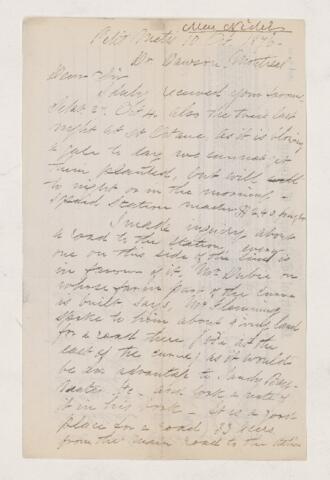 Petit Metis 10 Oct 1876
Dr. Dawson Montreal
Dear Sir
I duly received your favour
Sept 27. Oct 4. also the trees last
night at St Octave as it is blowing
a gale to day we cannot get
them planted, but will
to night or in the morning
I paid Station master
I made inquiry about
a road to the station, every
one on this side of the land is
in favour of it, Mr.
whose farm part of the curve
is built says, Mr Flemming
spoke to him about
for a road there at the
east of the curve, as it would
be an advantage to Sandy Bay
&c - and took a note of
it in his book - it is a good
place for a road, 33 acres
from the main road to the